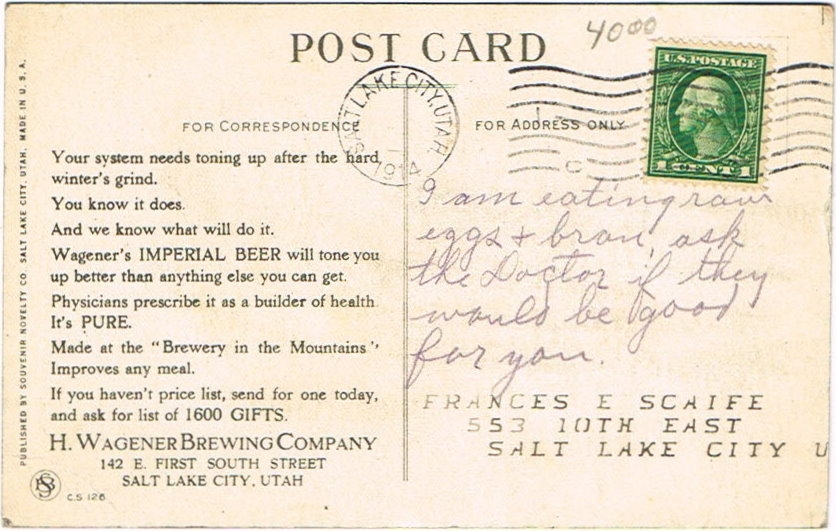 40 00
POST CARD
U.S. POSTAGE
1 CENT 1
SALT LAKE CITY, UTAH
1914
FOR CORRESPONDENCE
FOR ADDRESS ONLY
Your system needs toning up after the hard
winter's grind.
You know it does.
And we know what will do it.
Wagener's IMPERIAL BEER will tone you
up better than anything else you can get.
Physicians prescribe it as a builder of health.
It's PURE.
Made at the "Brewery in the Mountains"
Improves any meal.
If you haven't price list, send for one today,
and ask for list of 1600 GIFTS.
H. WAGENER BREWING COMPANY
142 E. FIRST SOUTH STREET
SALT LAKE CITY, UTAH
C.S 126
PUBLISHED BY SOUVENIR NOVELTY CO. SALT LAKE CITY, UTAH. MADE IN U. S. A.
I am eating raw
eggs & bran, ask
the Doctor if they
would be good
for you.
FRANCES E SCAIFE
553 10TH EAST
SALT LAKE CITY U